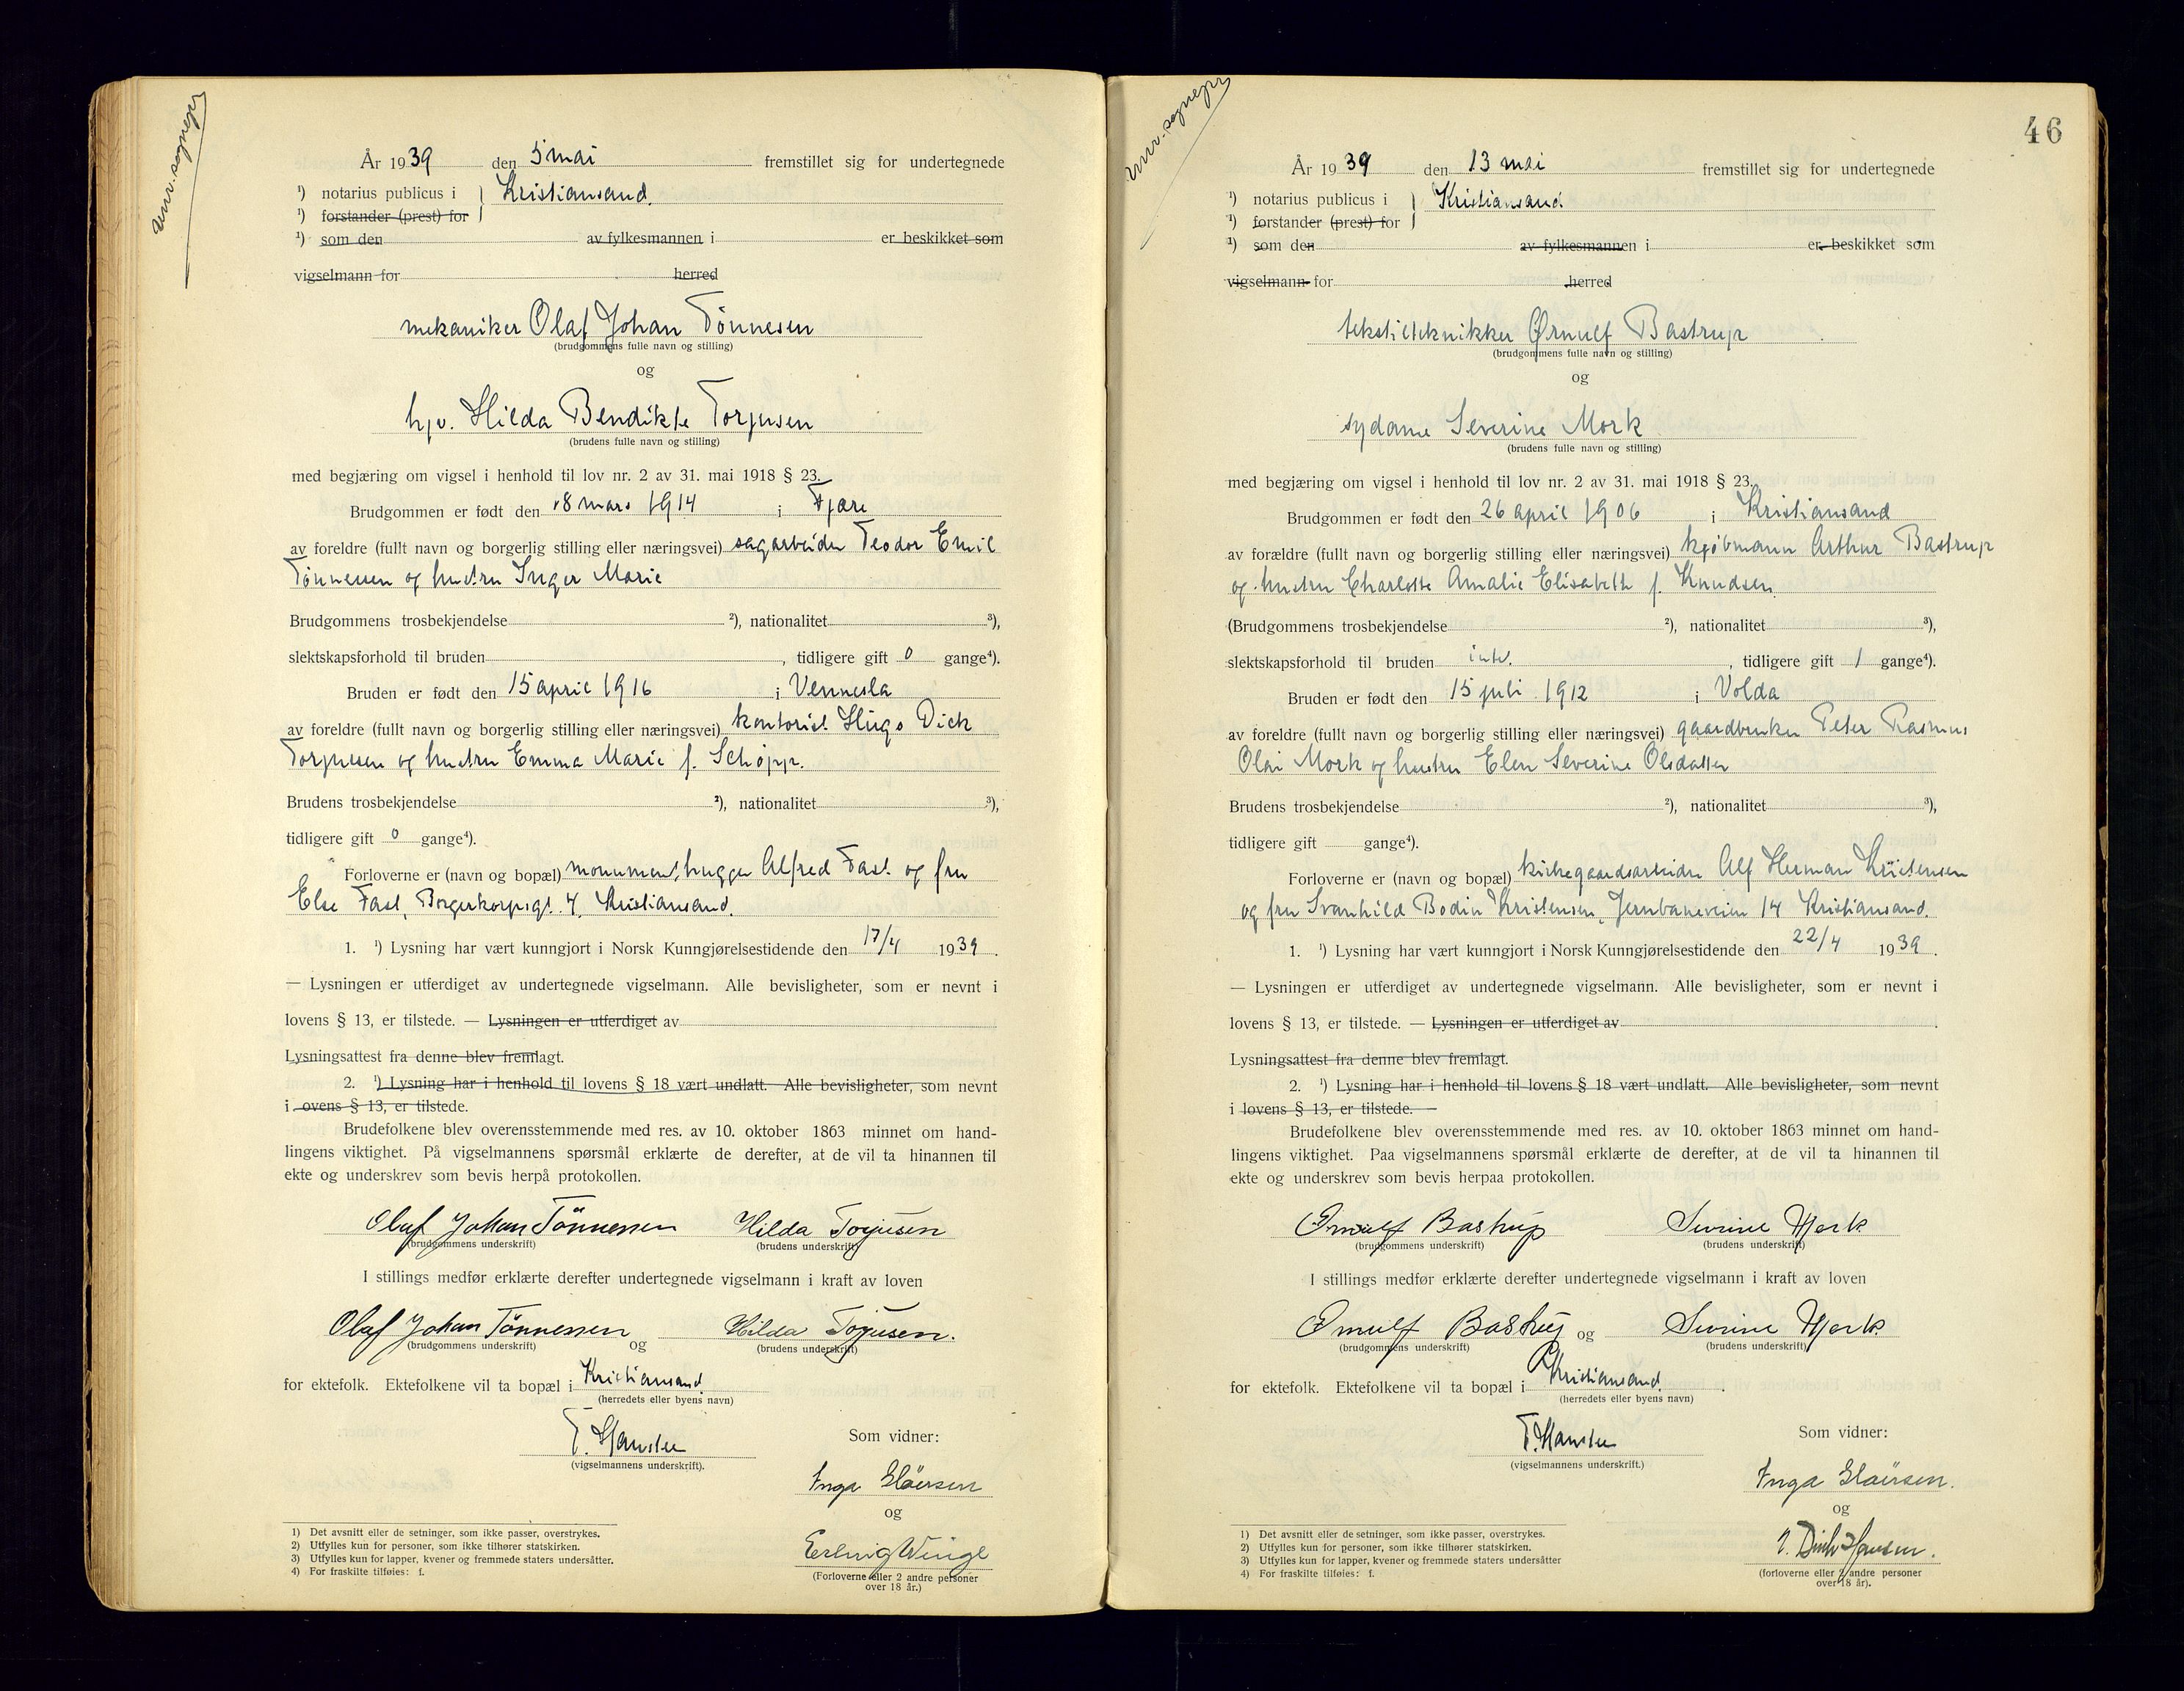 År 1939 den 5 mai fremstillet sig for undertegnede
¹) notarius publicus i } Kristiansand.
¹) forstander (prest) for
¹) som den av fylkesmannen i er beskikket som
vigselmann for herred
mekaniker Olaf Johan Tönnesen
(brudgommens fulle navn og stilling)
og
hjv. Hilda Bendikte Torjusen
(brudens fulle navn og stilling)
med begjæring om vigsel i henhold til lov nr. 2 av 31. mai 1918 § 23.
Brudgommen er født den 18 mars 1914 i Fjære
av foreldre (fullt navn og borgerlig stilling eller næringsvei) sagarbeider Teodor Emil
Tönnessen og hustru Inger Marie
Brudgommens trosbekjendelse ²), nationalitet ³),
slektskapsforhold til bruden , tidligere gift 0 gange⁴).
Bruden er født den 15 april 1916 i Vennesla
av foreldre (fullt navn og borgerlig stilling eller næringsvei) kontorist Hugo Dick
Torjusen og hustru Emma Marie f. Schöpp.
Brudens trosbekjendelse ²), nationalitet ³),
tidligere gift 0 gange⁴).
Forloverne er (navn og bopæl) monumenthugger Alfred Fast og fru
Else Fast, Borgerkorpsgt. 4, Kristiansand.
1. ¹) Lysning har vært kunngjort i Norsk Kunngjørelsestidende den 17/4 1939.
— Lysningen er utferdiget av undertegnede vigselmann. Alle bevisligheter, som er nevnt i
lovens § 13, er tilstede. — Lysningen er utferdiget av
Lysningsattest fra denne blev fremlagt.
2. ¹) Lysning har i henhold til lovens § 18 vært undlatt. Alle bevisligheter, som nevnt
i ovens § 13, er tilstede.
Brudefolkene blev overensstemmende med res. av 10. oktober 1863 minnet om hand-
lingens viktighet. På vigselmannens spørsmål erklærte de derefter, at de vil ta hinannen til
ekte og underskrev som bevis herpå protokollen.
Olaf Johan Tönnessen Hilda Torjusen
(brudgommens underskrift) (brudens underskrift)
I stillings medfør erklærte derefter undertegnede vigselmann i kraft av loven
Olaf Johan Tönnessen og Hilda Torjusen.
(brudgommens underskrift) (brudens underskrift)
for ektefolk. Ektefolkene vil ta bopæl i Kristiansand.
(herredets eller byens navn)
T. Hansen
(vigselmannens underskrift).
Som vidner:
Inga Glöersen
og
Erling Winge
(Forloverne eller 2 andre personer
over 18 år.)
1) Det avsnitt eller de setninger, som ikke passer, overstrykes.
2) Utfylles kun for personer, som ikke tilhører statskirken.
3) Utfylles kun for lapper, kvener og fremmede staters undersåtter.
4) For fraskilte tilføies: f.
46
År 1939 den 13 mai fremstillet sig for undertegnede
¹) notarius publicus i } Kristiansand
¹) forstander (prest) for
¹) som den av fylkesmannen i er beskikket som
vigselmann for herred
tekstiltteknikker Ørnulf Bastrup
(brudgommens fulle navn og stilling)
og
sydame Severine Mork
(brudens fulle navn og stilling)
med begjæring om vigsel i henhold til lov nr. 2 av 31. mai 1918 § 23.
Brudgommen er født den 26 april 1906 i Kristiansand
av forældre (fullt navn og borgerlig stilling eller næringsvei) kjøbmann Arthur Bastrup
og hustru Charlotte Amalie Elisabeth f. Knudsen.
(Brudgommens trosbekjendelse ²), nationalitet ³),
slektskapsforhold til bruden intv. , tidligere gift 1 gange⁴).
Bruden er født den 15 juli 1912 i Volda
av foreldre (fullt navn og borgerlig stilling eller næringsvei) gaardbruker Peter Rasmus
Olai Mork og hustru Elen Severine Olsdatter
Brudens trosbekjendelse ²), nationalitet ³),
tidligere gift gange⁴).
Forloverne er (navn og bopæl) kirkegaardsarbeider Alf Herman Kristensen
og fru Svanhild Bodin Kristensen, Jernbaneveien 14 Kristiansand.
1. ¹) Lysning har vært kunngjort i Norsk Kunngjørelsestidende den 22/4 1939.
— Lysningen er utferdiget av undertegnede vigselmann. Alle bevisligheter, som er nevnt i
lovens § 13, er tilstede. — Lysningen er utferdiget av .
Lysningsattest fra denne blev fremlagt.
2. ¹) Lysning har i henhold til lovens § 18 vært undlatt. Alle bevisligheter, som nevnt
i lovens § 13, er tilstede. —
Brudefolkene blev overensstemmende med res. av 10. oktober 1863 minnet om hand-
lingens viktighet. Paa vigselmannens spørsmål erklærte de derefter, at de vil ta hinannen til
ekte og underskrev som bevis herpaa protokollen.
Ørnulf Bastrup Severine Mork
(brudgommens underskrift) (brudens underskrift)
I stillings medfør erklærte derefter undertegnede vigselmann i kraft av loven
Ørnulf Bastrup og Severine Mork.
(brudgommens underskrift) (brudens underskrift)
for ektefolk. Ektefolkene vil ta bopæl i Kristiansand.
(herredets eller byens navn)
T. Hansen
(vigselmannens underskrift.)
Som vidner:
Inga Glöersen.
og
Hansen.
(forloverne eller 2 andre personer
over 18 år).
1) Det avsnitt eller de setninger, som ikke passer, overstrykes.
2) Utfylles kun for personer, som ikke tilhører statskirken.
3) Utfylles kun for lapper, kvener og fremmede staters undersåtter
4) For fraskilte tilføies: f.